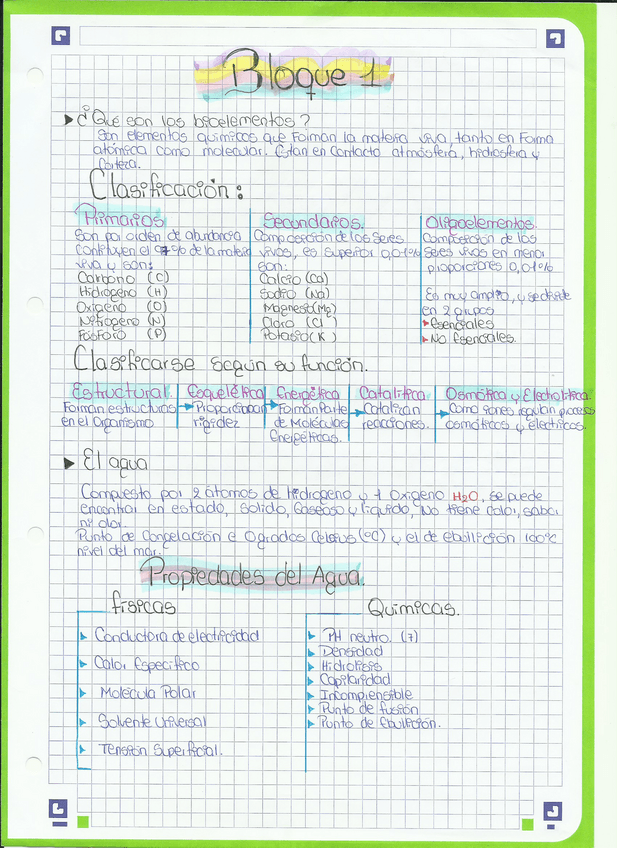 Bloque 1
¿Qué son los bioelementos?
Son elementos químicos que Forman la materia viva, tanto en Forma
atómica como molecular. Estan en Contacto atmósfera, hidrosfera y
Corteza.
Clasificación:
Primarios
Son por orden de abundancia
Contituyen el 97% de la materia
viva y son:
Carbono (C)
Hidrogeno (H)
Oxigeno (O)
Nitrogeno (N)
Fósforo (P)
Secundarios.
Composición de los Seres
vivos, es Superior 0,01%
son:
Calcio (Ca)
Sodio (Na)
Magnesio (Mg)
Cloro (Cl
Potasio (K)
Oligoelementos.
Composicion de los
Seres vivos en menor
proporciones 0,01%
Es muy amplio, y se divide
en 2 grupos
Esenciales
No Esenciales.
Clasificarse según su función.
Estructural
Forman estructuras
en el Organismo
Esquelética
Proporcionan
rigidez
Energética
Forman Parte
de Moléculas
Energéticas.
Catalitica
Catalizan
reacciones.
Osmótica y Electrolítica
Como iones regulan procesos
osmóticos y electricos.
El agua
Compuesto por 2 átomos de hidrogeno y 1 Oxigeno H2O, se puede
encontrar en estado, Solido, Gaseoso y líquido, No tiene color, sabor
ni olor.
Punto de Congelación e 0 grados Celsius (°C) y el de ebullición 100°C
nivel del mar.
Propiedades del Agua.
físicas
Conductora de electricidad
Calor Especifico
Molécula Polar
Solvente Universal
Tensión Superficial.
Químicas.
PH neutro. (7)
Densidad
Hidrolisis
Capilaridad
Incompresible
Punto de fusión
Punto de Ebullición.